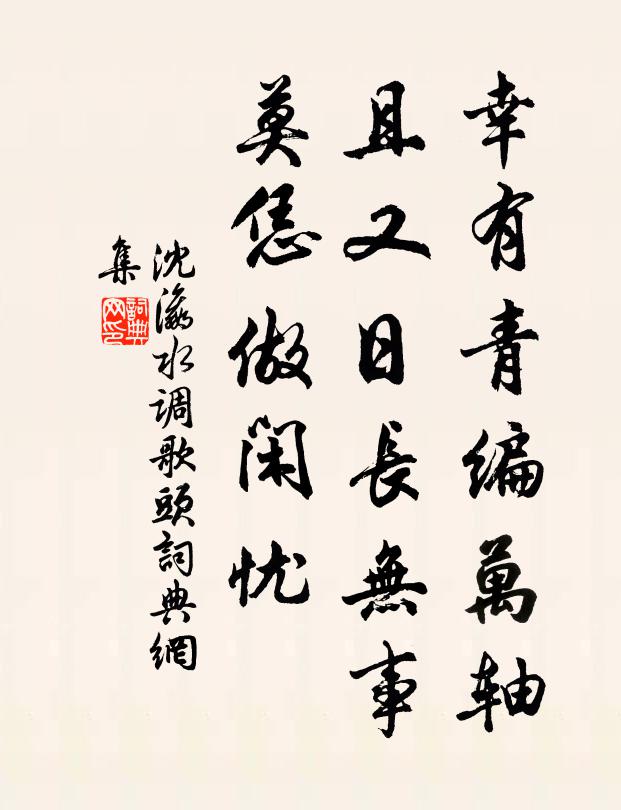 幸有青编萬轴
且又日長無事
莫恁做闲忧
沈瀛水调歌頭詞典網
集
詞典网印